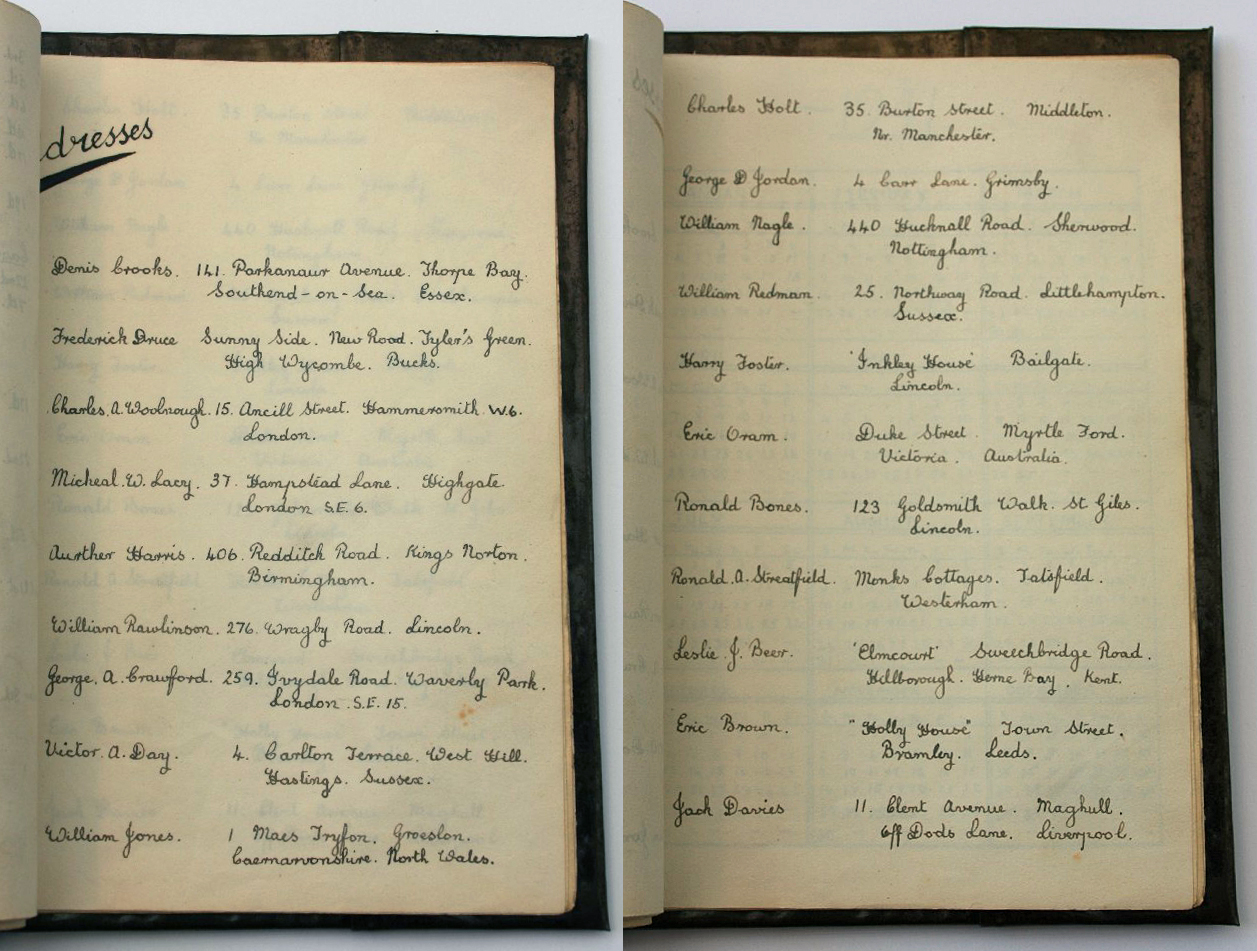 dresses
Denis Crooks. 141. Parkanaur Avenue. Thorpe Bay.
Southend-on-Sea. Essex.
Frederick Druce Sunny Side. New Road. Tyler's Green.
High Wycombe. Bucks.
Charles. A. Woolnough. 15. Ancill Street. Hammersmith. W.6.
London.
Micheal. W. Lacy. 37. Hampstead Lane. Highgate
London S.E. 6.
Aurther Harris. 406. Redditch Road. Kings Norton.
Birmingham.
William Rawlinson. 276. Wragby Road. Lincoln.
George. A. Crawford. 259. Ivydale Road. Waverly Park.
London. S.E. 15.
Victor. A. Day. 4. Carlton Terrace. West Hill.
Hastings. Sussex.
William Jones. 1 Maes Tryfon. Groeslon.
Caernarvonshire. North Wales.
Charles Holt. 35. Burton Street. Middleton.
Nr. Manchester.
George D Jordan. 4 Carr Lane. Grimsby.
William Nagle. 440 Hucknall Road. Sherwood.
Nottingham.
William Redman. 25. Northway Road. Littlehampton.
Sussex.
Harry Foster. 'Inkley House' Bailgate.
Lincoln.
Eric Oram. Duke Street. Myrtle Ford.
Victoria. Australia.
Ronald Bones. 123 Goldsmith Walk. St Giles.
Lincoln.
Ronald. A. Streatfield. Monks Cottages. Tatsfield.
Westerham.
Leslie. J. Beer. 'Elmcourt' Sweechbridge Road.
Hillborough. Herne Bay. Kent.
Eric Brown. "Holby House" Town Street.
Bramley. Leeds.
Jack Davies 11. Clent Avenue. Maghull.
Off Dods Lane. Liverpool.